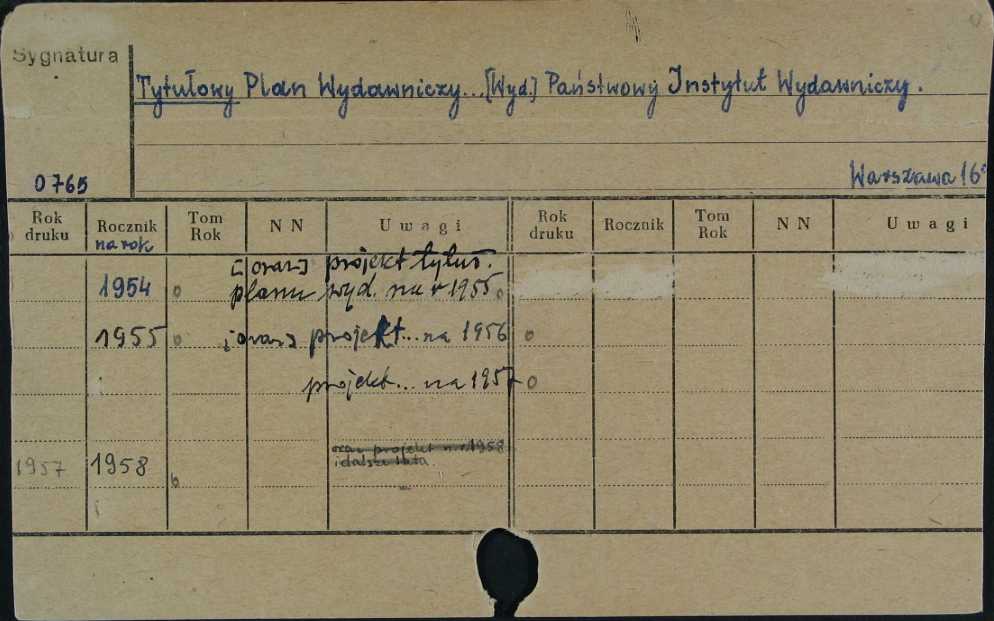 Sygnatura
Tytułowy Plan Wydawniczy...[Wyd.] Państwowy Instytut Wydawniczy.
0765
Warszawa 16°
Rok druku Rocznik Tom Rok N N Uwagi Rok druku Rocznik Tom Rok N N Uwagi
na rok
[oraz] projekt tytuł.
1954 o planu wyd. na r 1955 o
1955 o [oraz] projekt... na 1956 o
projekt... na 1957 o
oraz projekt n. r. 1958
1957 1958 i dalsze lata.